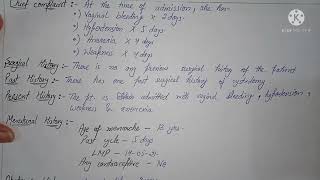 Chief complaint :- At the time of admission, she has
•) Vaginal bleeding x 2 days
•) Hypertension x 5 days
•) Anorexia x 4 days
•) Weakness x 4 days
Surgical History :- There is no any previous surgical history of the patient
Past History :- There has one past surgical history of
Present History :- The pt. is admitted with vaginal bleeding, hypertension,
weakness & anorexia
Menstrual History :-
Age of menarche - 13 yrs.
Past cycle - 5 days
LMP - 14-05-21
Any contraceptive - No